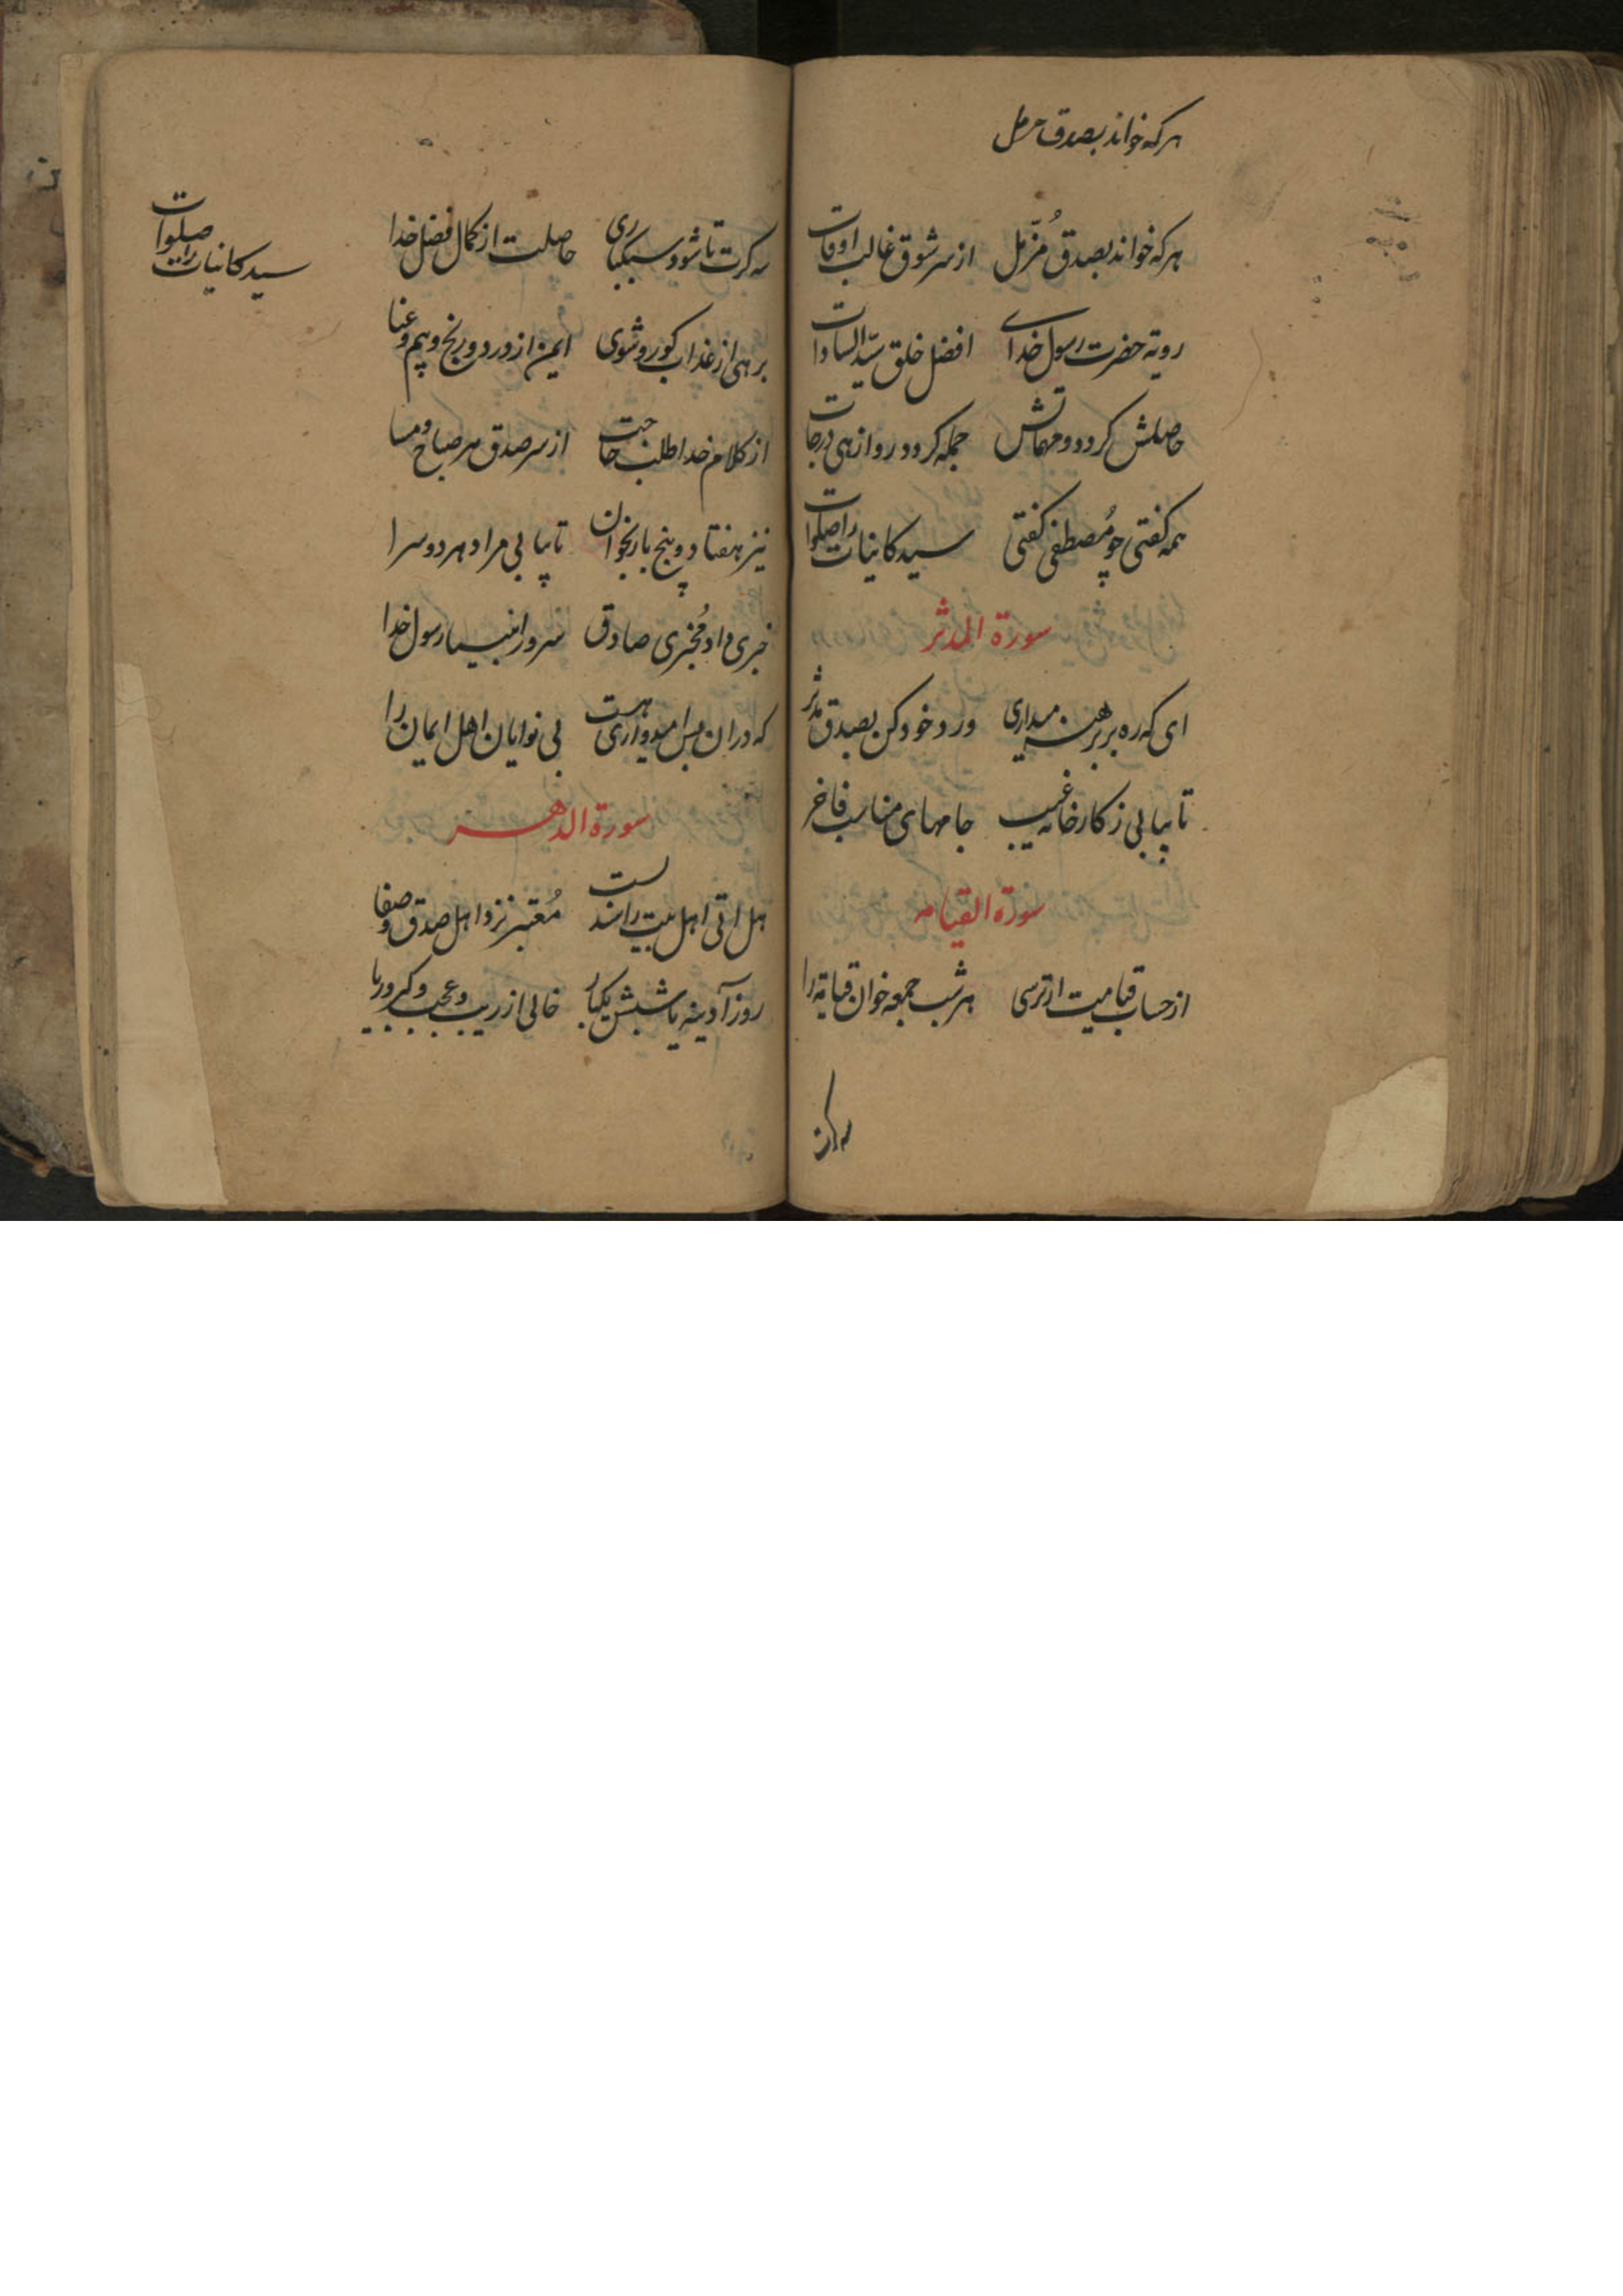 هرکه خواند بصدق مزمل
هرکه خواند بصدق مُزّمل از سر شوق غالب اوقات
رویة حضرت رسول خدای افضل خلق سیّد السادات
حاصلش کردد و مهماتش جمله کردد روا زهی درجات
همه کفتی چو مُصطفی کفتی سید کاینات را صلوات
سورة المدثر
ای که ره بر برهنه میداری ورد خود کن بصدق مدثر
تا بیابی ز کارخانه غیب جامهای مناسب فاخر
سورة القیامه
از حساب قیامت ار ترسی هر شب جمعه خوان قیامة را
سه کرت
سه کرت تا شود سبکباری حاصلت از کمال فضل خدا
برهی از عذاب کور و شوی ایمن از درد و رنج و بیم و عنا
از کلام خدا طلب حاجت از سر صدق هر صباح و مسا
نیز هفتاد و پنج بار بخوان تا بیابی مراد هر دو سرا
خبری داد مُخبری صادق سرور انبیا رسول خدا
که دران بس امیدواری هست بی نوایان اهل ایمان را
سورة الدهر
هل اتی اهل بیت را سندست مُعتبر نزد اهل صدق و صفا
روز آدینه یا شبش یکبار خالی از ریب و عجب و کبر و ریا
سید کاینات را صلوات